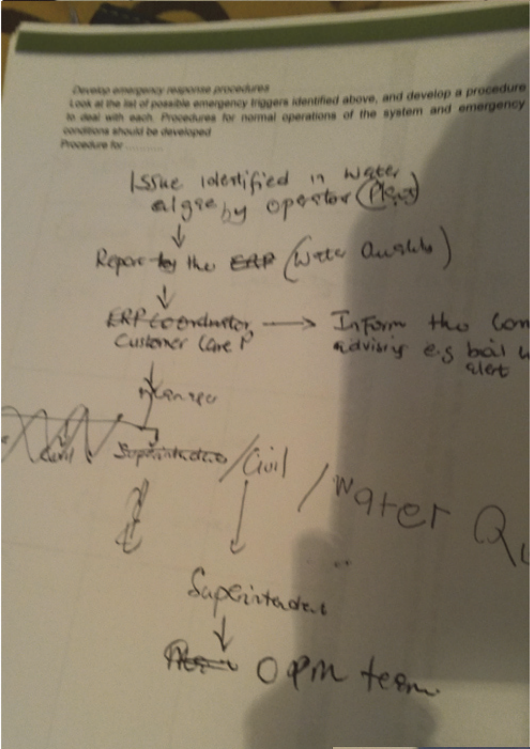 Develop emergency response procedures
Look at the list of possible emergency triggers identified above, and develop a procedure
to deal with each. Procedures for normal operations of the system and emergency
conditions should be developed
Procedure for ..........
Issue identified in water
algae by operator (Plant)
↓
Report by the ERP (Water Quality)
↓
ERP Coordinator → Inform the Com
Customer Care P advising e.g boil w
alert
↓
Manager
Civil Superintendent / Civil / Water Qu
↓
Superintendent
↓
OPM team